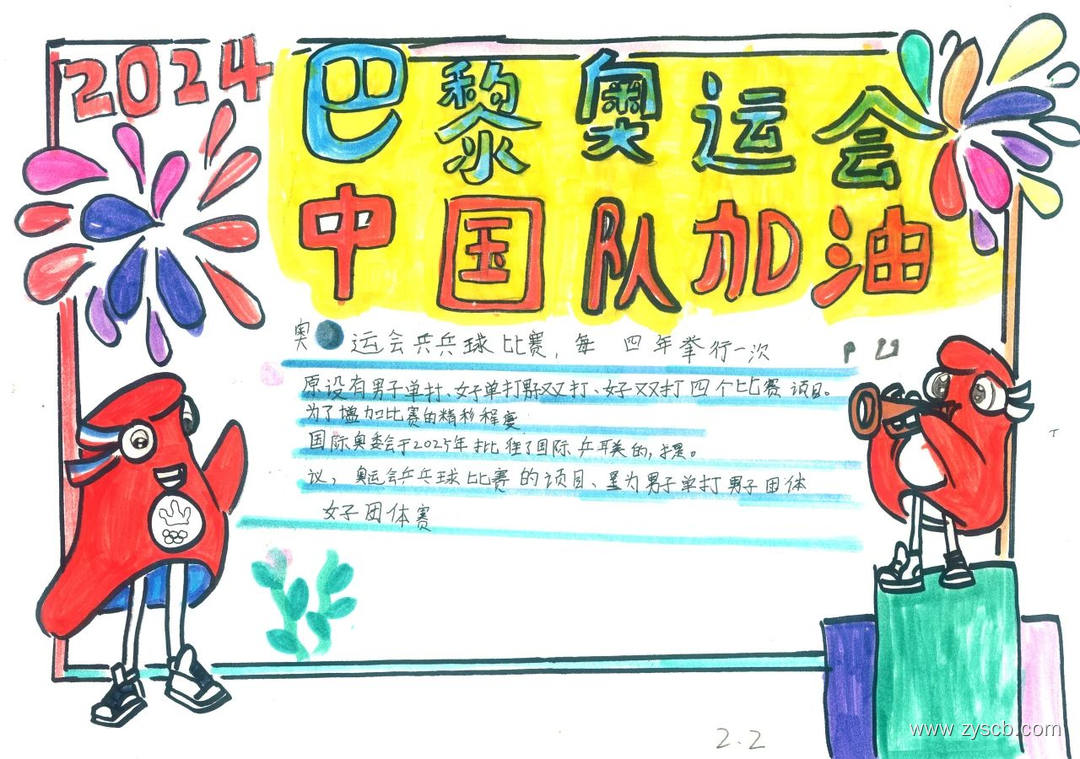 2024
巴黎奥运会
中国队加油
奥运会兵兵球比赛，每四年举行一次
原设有男子单打、女子单打男双打、女子双打四个比赛项目。
为了增加比赛的精彩程度
国际奥委会于2025年批准了国际乒联的,提。
议，奥运会乒乓球比赛的项目、呈为男子单打男子团体
女子团体赛
2.2
www.zyscb.com